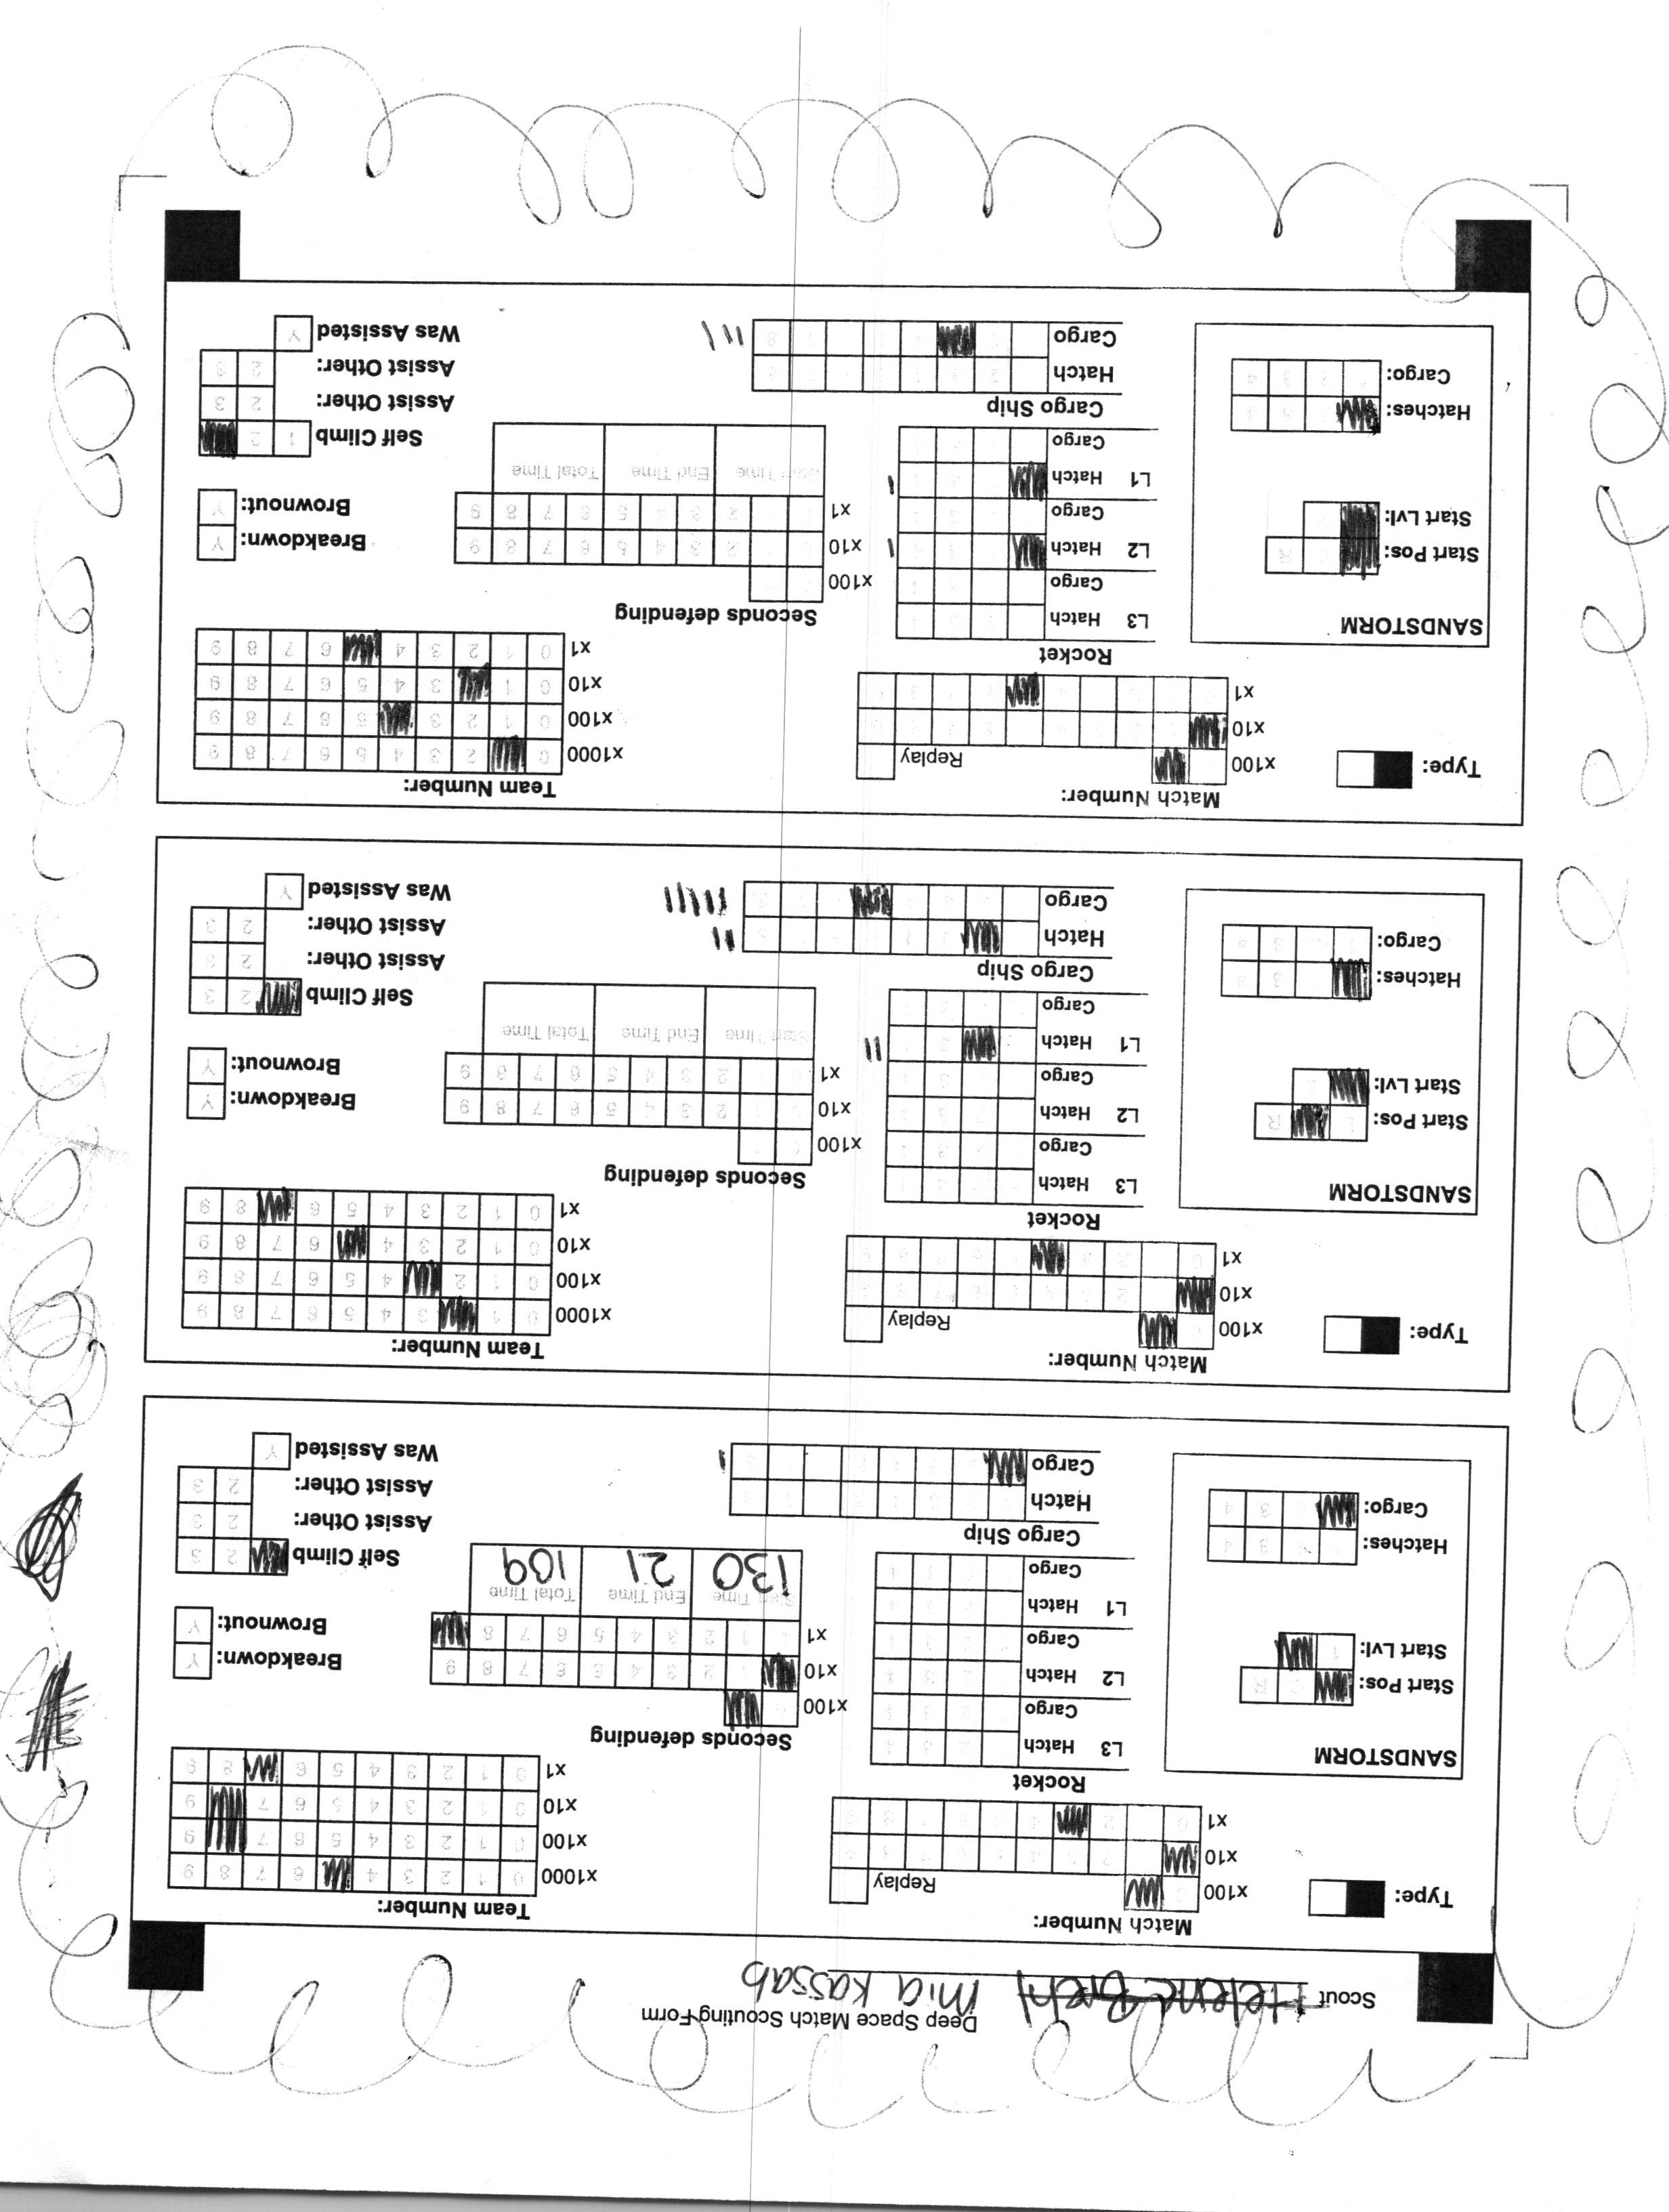 Deep Space Match Scouting Form
Scout Helene Breht Mia Kassab
Type:
Match Number:
x100
Replay
x10
x1
Team Number:
x1000 0 1 2 3 4 6 7 8 9
x100 0 1 2 3 4 5 6 7 9
x10 0 1 2 3 4 5 6 7 9
x1 0 1 2 3 4 5 6 8 9
SANDSTORM
Start Pos: R
Start Lvl: 1
Hatches: 3 4
Cargo: 3 4
Rocket
L3 Hatch
Cargo
L2 Hatch
Cargo
L1 Hatch
Cargo
Cargo Ship
Hatch
Cargo
Seconds defending
x100
x10 1 2 3 4 5 6 7 8 9
x1 1 2 3 4 5 6 7 8
Start Time End Time Total Time
130 21 109
Breakdown: Y
Brownout: Y
Self Climb 2 3
Assist Other: 2 3
Assist Other: 2 3
Was Assisted Y
Type:
Match Number:
x100
Replay
x10
x1
Team Number:
x1000 0 1 3 4 5 6 7 8 9
x100 0 1 2 4 5 6 7 8 9
x10 0 1 2 3 4 6 7 8 9
x1 0 1 2 3 4 5 6 8 9
SANDSTORM
Start Pos: L R
Start Lvl: 2
Hatches: 3 4
Cargo: 3 4
Rocket
L3 Hatch
Cargo
L2 Hatch
Cargo
L1 Hatch
Cargo
Cargo Ship
Hatch
Cargo
Seconds defending
x100
x10 2 3 4 5 6 7 8 9
x1 2 3 4 5 6 7 8 9
Start Time End Time Total Time
Breakdown: Y
Brownout: Y
Self Climb 2 3
Assist Other: 2 3
Assist Other: 2 3
Was Assisted Y
Type:
Match Number:
x100
Replay
x10
x1
Team Number:
x1000 0 2 3 4 5 6 7 8 9
x100 0 1 2 3 5 6 7 8 9
x10 0 1 3 4 5 6 7 8 9
x1 0 1 2 3 4 6 7 8 9
SANDSTORM
Start Pos: R
Start Lvl:
Hatches: 3 4
Cargo: 2 3 4
Rocket
L3 Hatch
Cargo
L2 Hatch
Cargo
L1 Hatch
Cargo
Cargo Ship
Hatch
Cargo
Seconds defending
x100
x10 2 3 4 5 6 7 8 9
x1 2 3 4 5 6 7 8 9
Start Time End Time Total Time
Breakdown: Y
Brownout: Y
Self Climb 1 2
Assist Other: 2 3
Assist Other: 2 3
Was Assisted Y